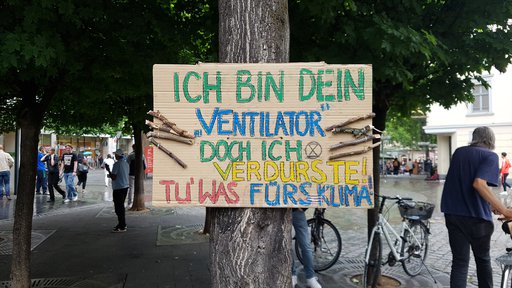 ICH BIN DEIN
„VENTILATOR“
DOCH ICH
VERDURSTE!
TU'WAS FÜRS KLIMA